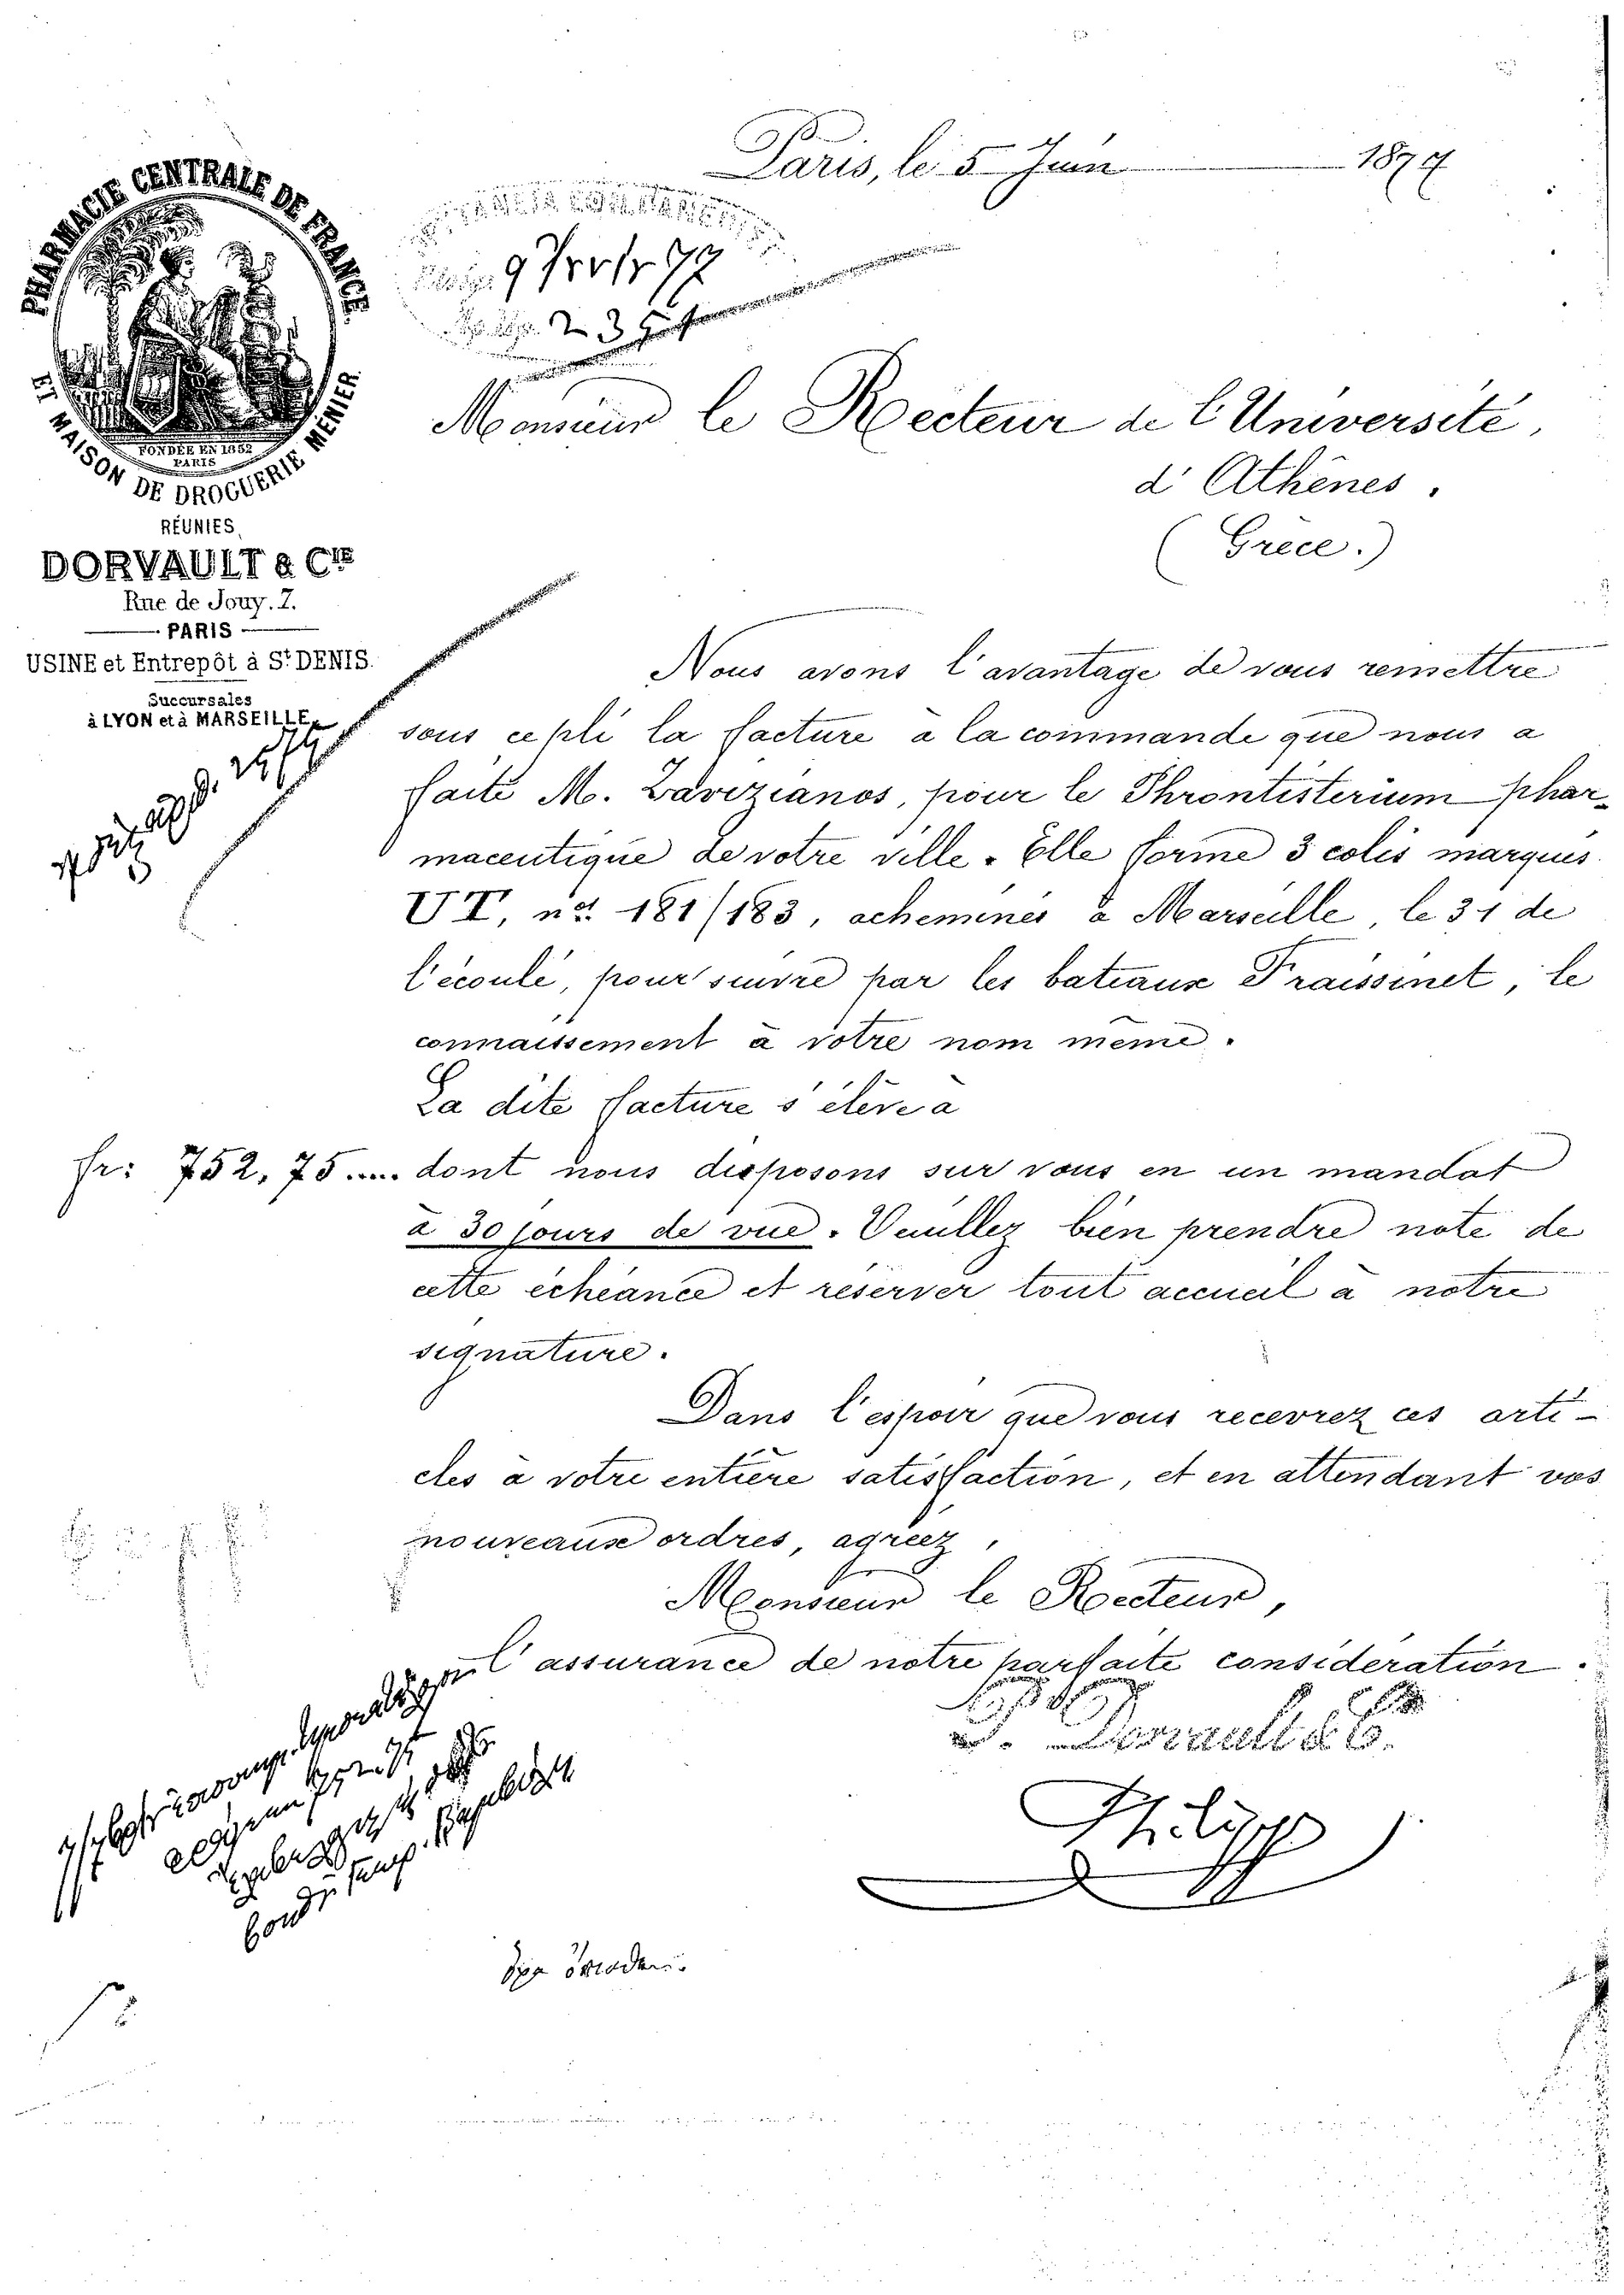 Paris, le 5 Juin 1877
PHARMACIE CENTRALE DE FRANCE.
ET MAISON DE DROGUERIE MENIER.
FONDÉE EN 1852
PARIS
RÉUNIES
DORVAULT & Cie
Rue de Jouy. 7.
PARIS
USINE et Entrepôt à St DENIS.
Succursales
à LYON et à MARSEILLE
Monsieur le Recteur de l'Université,
d'Athênes.
(Grèce.)
Nous avons l'avantage de vous remettre
sous ce pli la facture à la commande que nous a
faite M. Zavizianos, pour le Phrontisterium phar-
maceutique de votre ville. Elle forme 3 colis marqués
UT, nos 181/183, acheminés à Marseille, le 31 de
l'écoulé, pour suivre par les bateaux Fraissinet, le
connaissement à votre nom même.
La dite facture s'élève à
fr: 752,75.... dont nous disposons sur vous en un mandat
à 30 jours de vue. Veuillez bien prendre note de
cette échéance et réserver tout accueil à notre
signature.
Dans l'espoir que vous recevrez ces arti-
cles à votre entière satisfaction, et en attendant vos
nouveaux ordres, agréez,
Monsieur le Recteur,
l'assurance de notre parfaite considération.
Dorvault & Cie